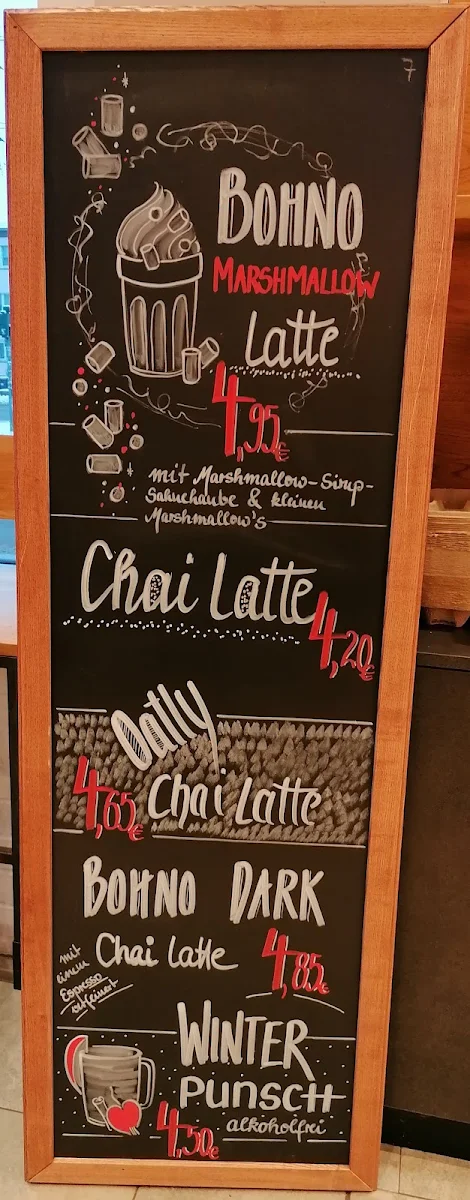 7
BOHNO
MARSHMALLOW
Latte
4,95€
mit Marshmallow-Sirup-
Sahnehaube & kleinen
Marshmallow's
Chai Latte
4,20€
Oatly
Chai Latte
4,65€
BOHNO DARK
Chai Latte
4,85€
mit
einem
Espresso
verfeinert
WINTER
PUNSCH
alkoholfrei
4,50€